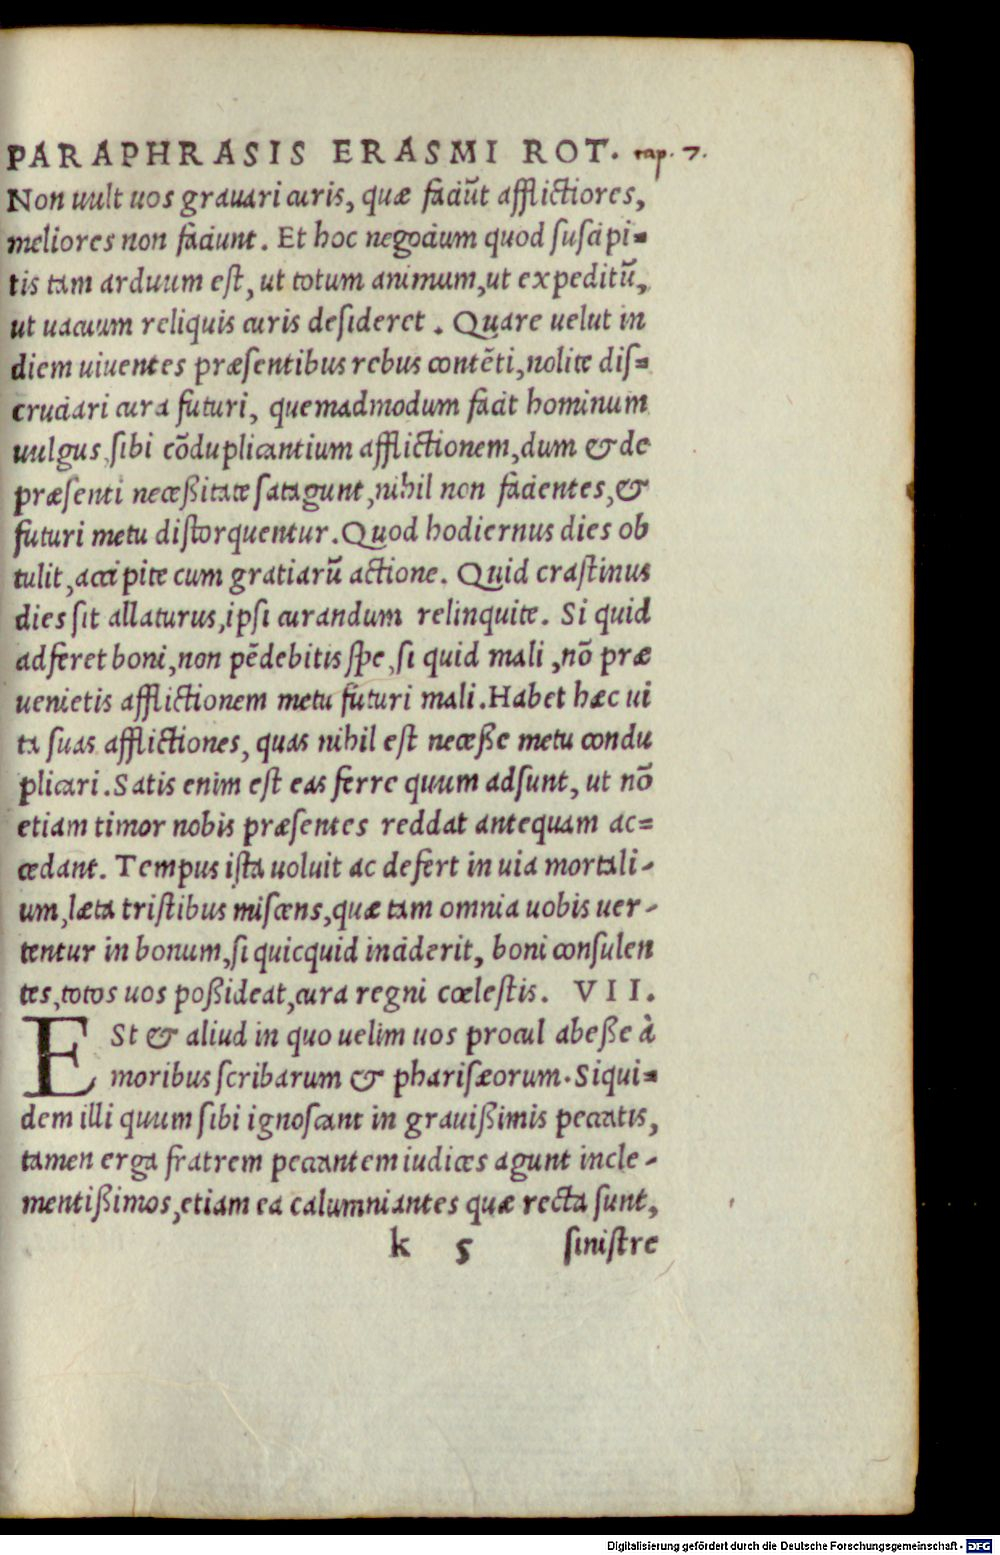 PARAPHRASIS ERASMI ROT. cap. 7.
Non uult uos grauari curis, quæ faciũt afflictiores,
meliores non faciunt. Et hoc negocium quod suscipi=
tis tam arduum est, ut totum animum, ut expeditũ,
ut uacuum reliquis curis desideret. Quare uelut in
diem uiuentes præsentibus rebus contẽti, nolite dis=
cruciari cura futuri, quemadmodum facit hominum
uulgus, sibi cõduplicantium afflictionem, dum & de
præsenti neceßitate satagunt, nihil non facientes, &
futuri metu distorquentur. Quod hodiernus dies ob
tulit, accipite cum gratiarũ actione. Quid crastinus
dies sit allaturus, ipsi curandum relinquite. Si quid
adferet boni, non pẽdebitis spe, si quid mali, nõ præ
uenietis afflictionem metu futuri mali. Habet hæc ui
ta suas afflictiones, quas nihil est neceße metu condu
plicari. Satis enim est eas ferre quum adsunt, ut nõ
etiam timor nobis præsentes reddat antequam ac=
cedant. Tempus ista uoluit ac defert in uia mortali-
um, læta tristibus miscens, quæ tam omnia uobis uer-
tentur in bonum, si quicquid inciderit, boni consulen
tes, totos uos poßideat, cura regni cœlestis. VII.
ESt & aliud in quo uelim uos procul abeße à
moribus scribarum & pharisæorum. Siqui=
dem illi quum sibi ignoscant in grauißimis peccatis,
tamen erga fratrem peccantem iudices agunt incle-
mentißimos, etiam ea calumniantes quæ recta sunt,
k 5 sinistre
Digitalisierung gefördert durch die Deutsche Forschungsgemeinschaft - DFG